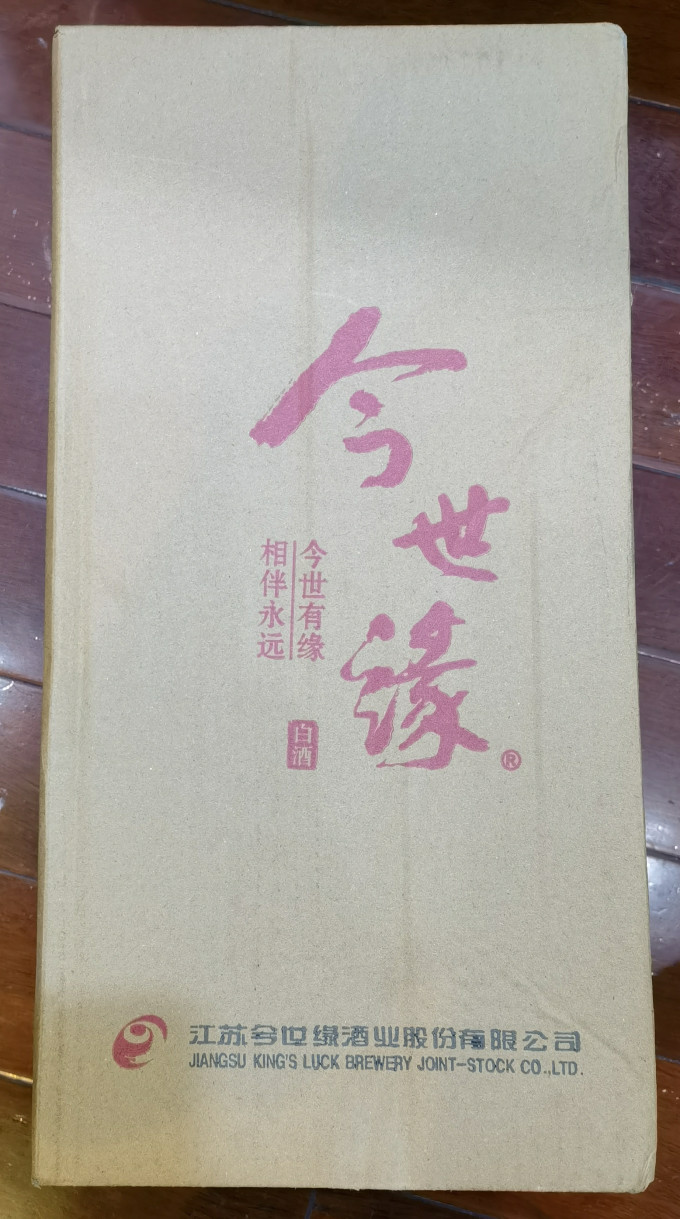 今世缘®
今世有缘
相伴永远
白酒
江苏今世缘酒业股份有限公司
JIANGSU KING'S LUCK BREWERY JOINT-STOCK CO.,LTD.